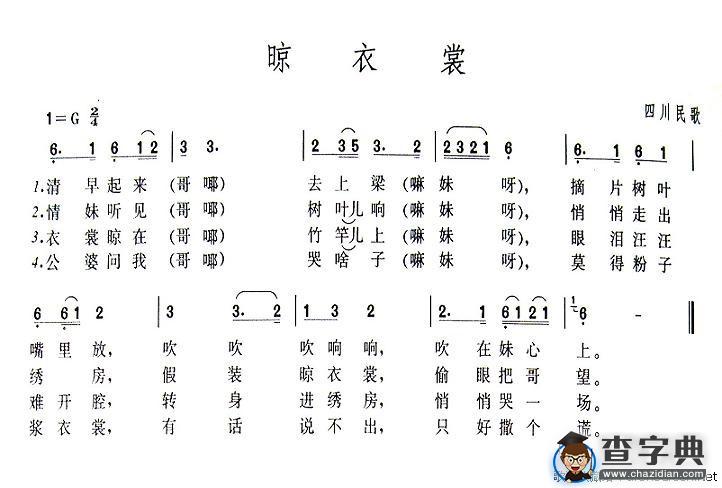 晾衣裳
1=G 2/4
四川民歌
6. 1 6 12 | 3 3. | 2 35 3. 2 | 2321 6 | 6. 1 6 1 |
1.清早起来(哥哪) 去上梁(嘛妹呀), 摘片树叶
2.情妹听见(哥哪) 树叶儿响(嘛妹呀), 悄悄走出
3.衣裳晾在(哥哪) 竹竿儿上(嘛妹呀), 眼泪汪汪
4.公婆问我(哥哪) 哭啥子(嘛妹呀), 莫得粉子
6 61 2 | 3 3. 2 | 1 3 2 | 2. 1 6 6 1 | 1 6 - ‖
嘴里放, 吹吹吹响响, 吹在妹心上。
绣房, 假装晾衣裳, 偷眼把哥望。
难开腔, 转身进绣房, 悄悄哭一场。
浆衣裳, 有话说不出, 只好撒个谎。
查字典
www.chazidian.com